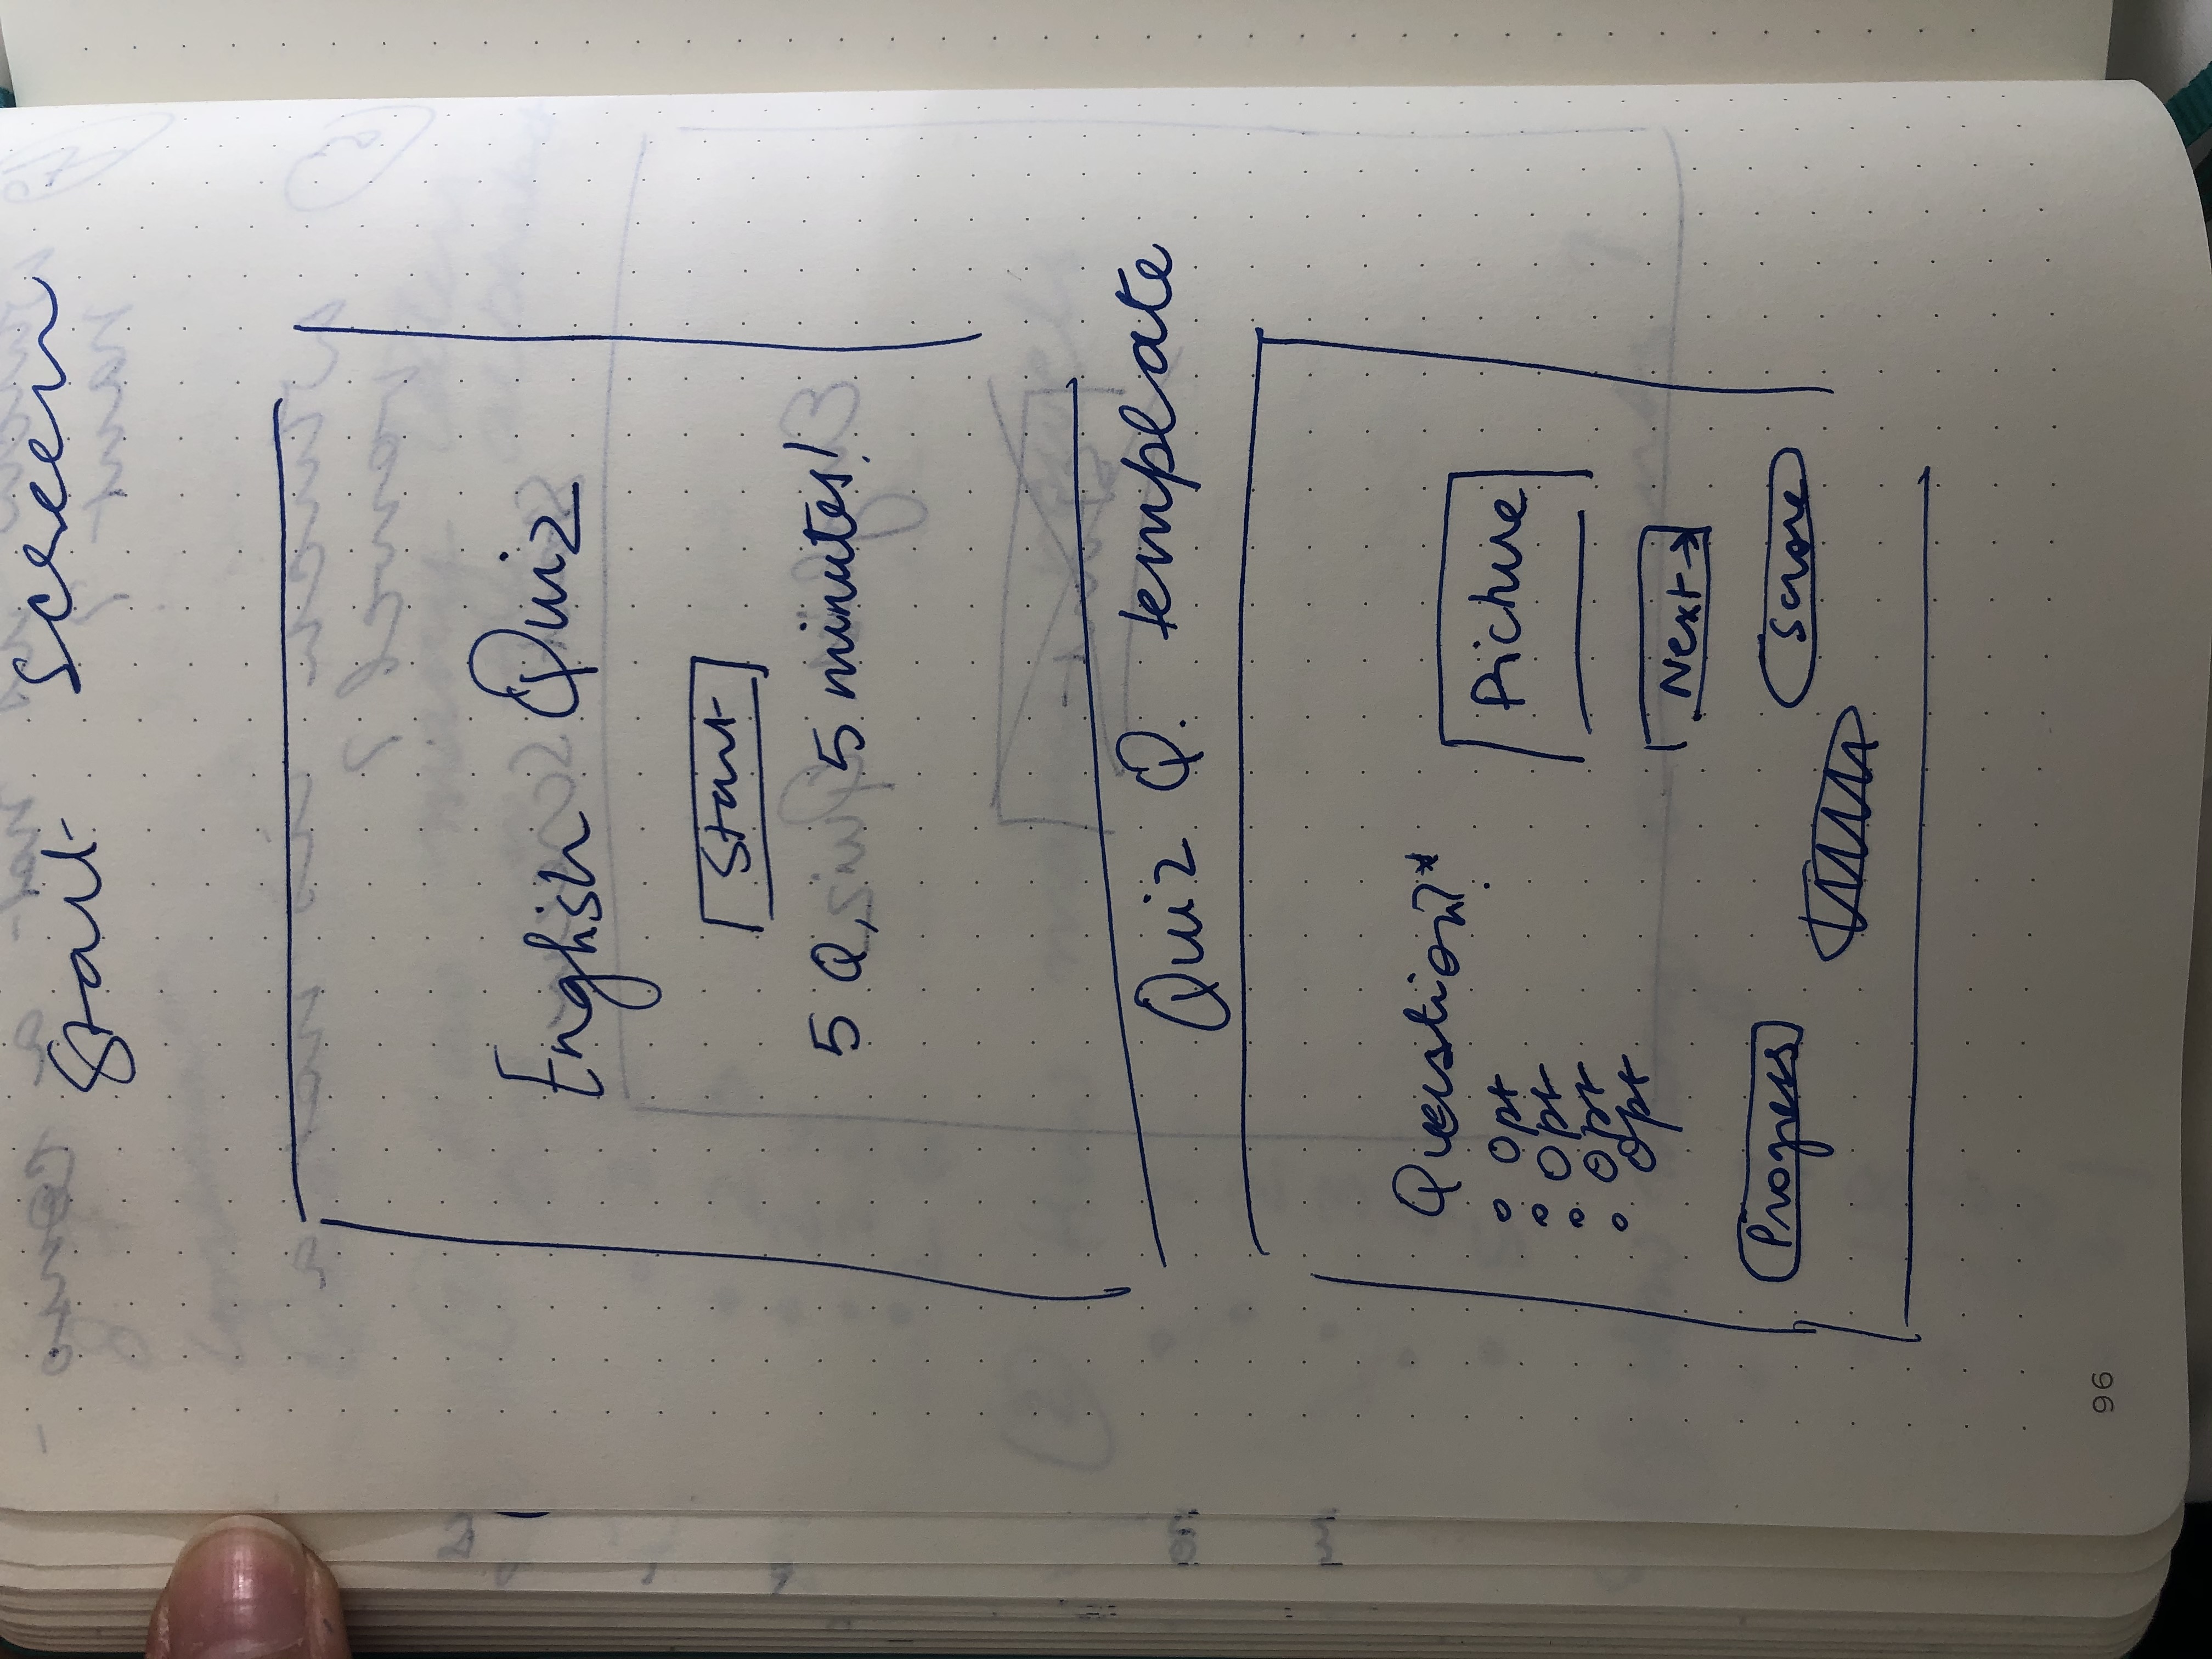 Start Screen
English Quiz
Start
5 Q, 5 minutes!
Quiz Q. template
Question?*
Opt
Opt
Opt
Opt
Picture
Next →
Progress
Score
96